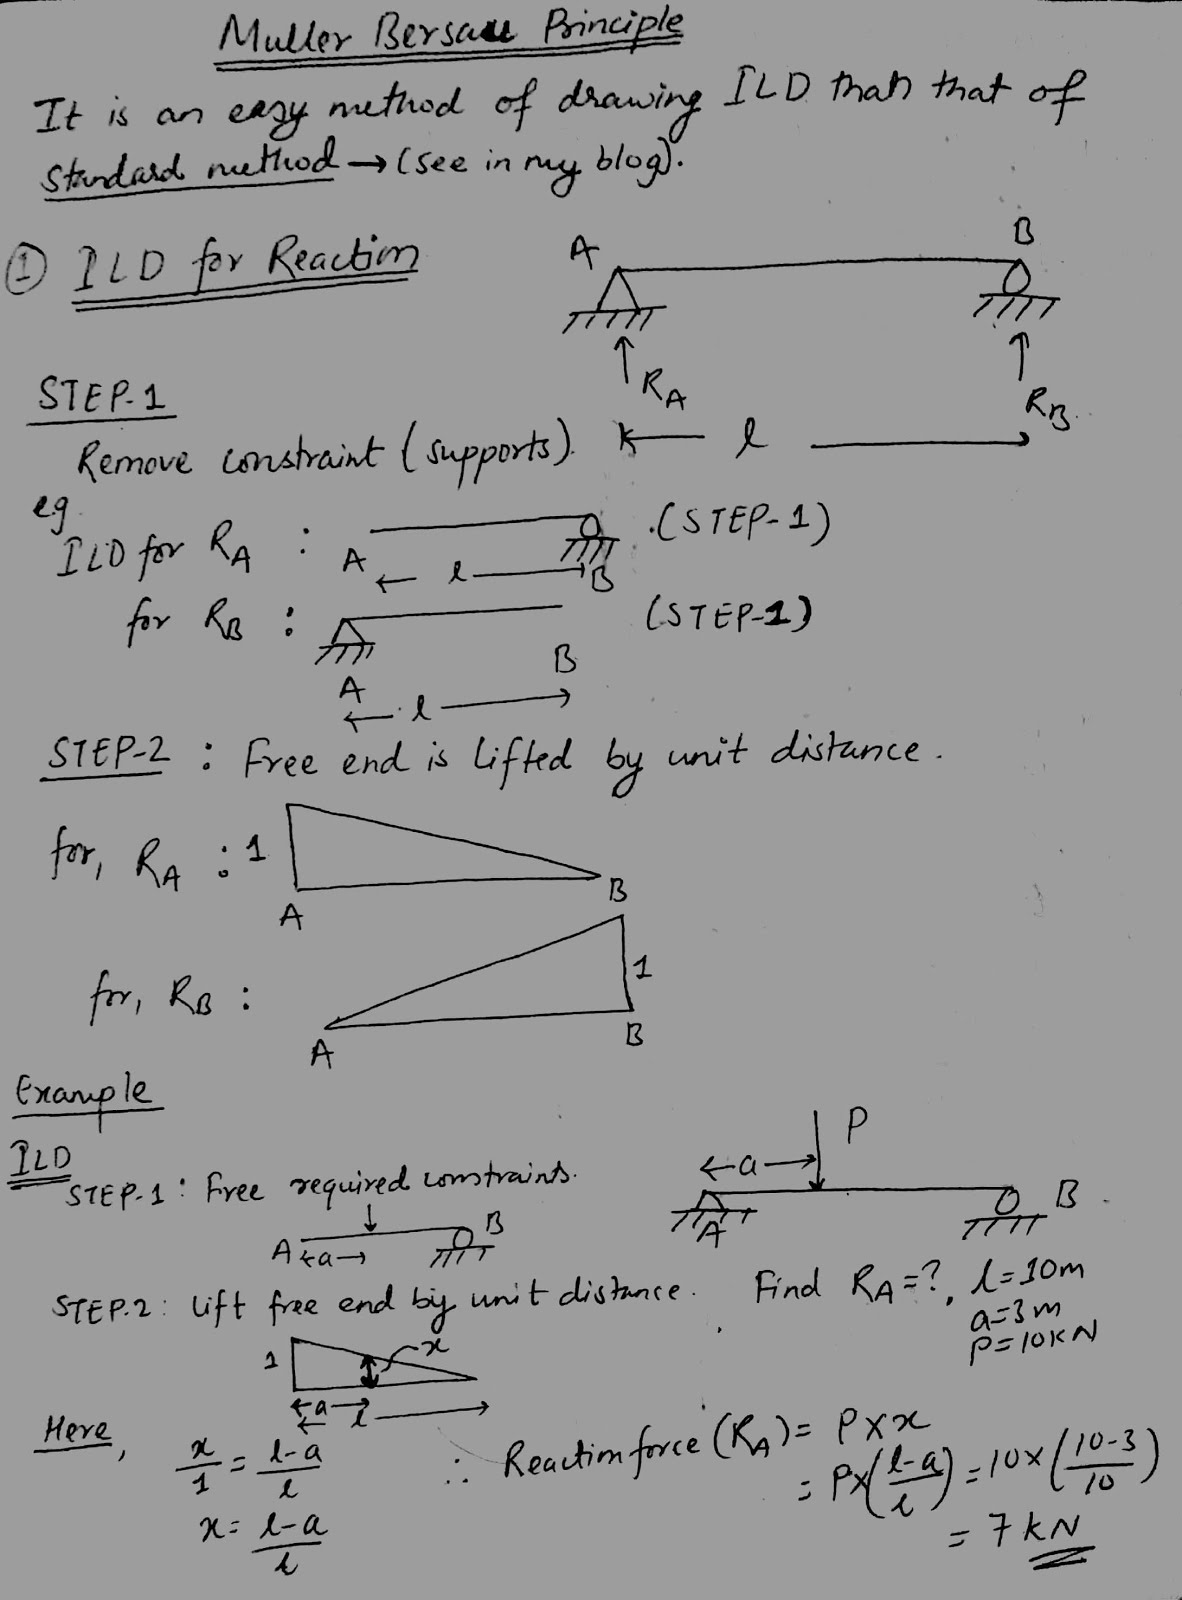 Muller Bersau Principle
It is an easy method of drawing ILD than that of
standard method → (see in my blog).
① ILD for Reaction
A B
R_A R_B
l
STEP-1
Remove constraint (supports).
eg.
ILD for R_A : A l B (STEP-1)
for R_B : (STEP-1)
A l B
STEP-2 : Free end is lifted by unit distance.
for, R_A : 1
A B
for, R_B : 1
A B
Example
P
ILD
a
STEP-1 : Free required constraints.
A B
A a B
STEP.2 : Lift free end by unit distance.
Find R_A = ?, l = 10m
a = 3m
P = 10KN
1 x
a
l
Here, x/1 = (l-a)/l
x = (l-a)/l
∴ Reaction force (R_A) = P×x
= P×((l-a)/l) = 10×((10-3)/10)
= 7 kN